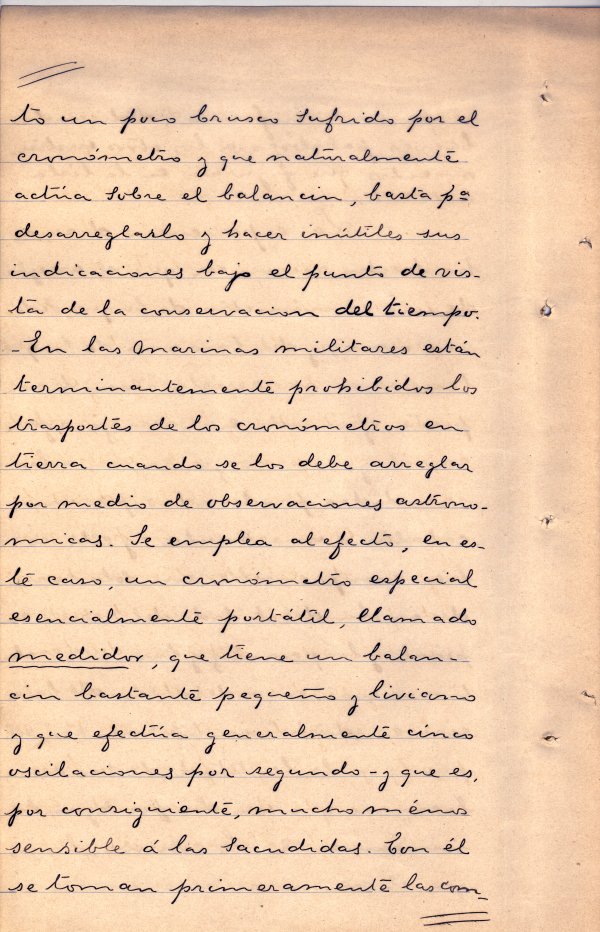 to un poco brusco sufrido por el
cronómetro y que naturalmente
actúa sobre el balancin, basta pa
desarreglarlo y hacer inútiles sus
indicaciones bajo el punto de vis-
ta de la conservacion del tiempo.
-En las marinas militares están
terminantemente prohibidos los
trasportes de los cronómetros en
tierra cuando se los debe arreglar
por medio de observaciones astrono-
micas. Se emplea al efecto, en es-
te caso, un cronómetro especial
esencialmente portátil, llamado
medidor, que tiene un balan-
cin bastante pequeño y liviano
y que efectúa generalmente cinco
oscilaciones por segundo - y que es,
por consiguiente, mucho ménos
sensible á las sacudidas. Con él
se toman primeramente las com-